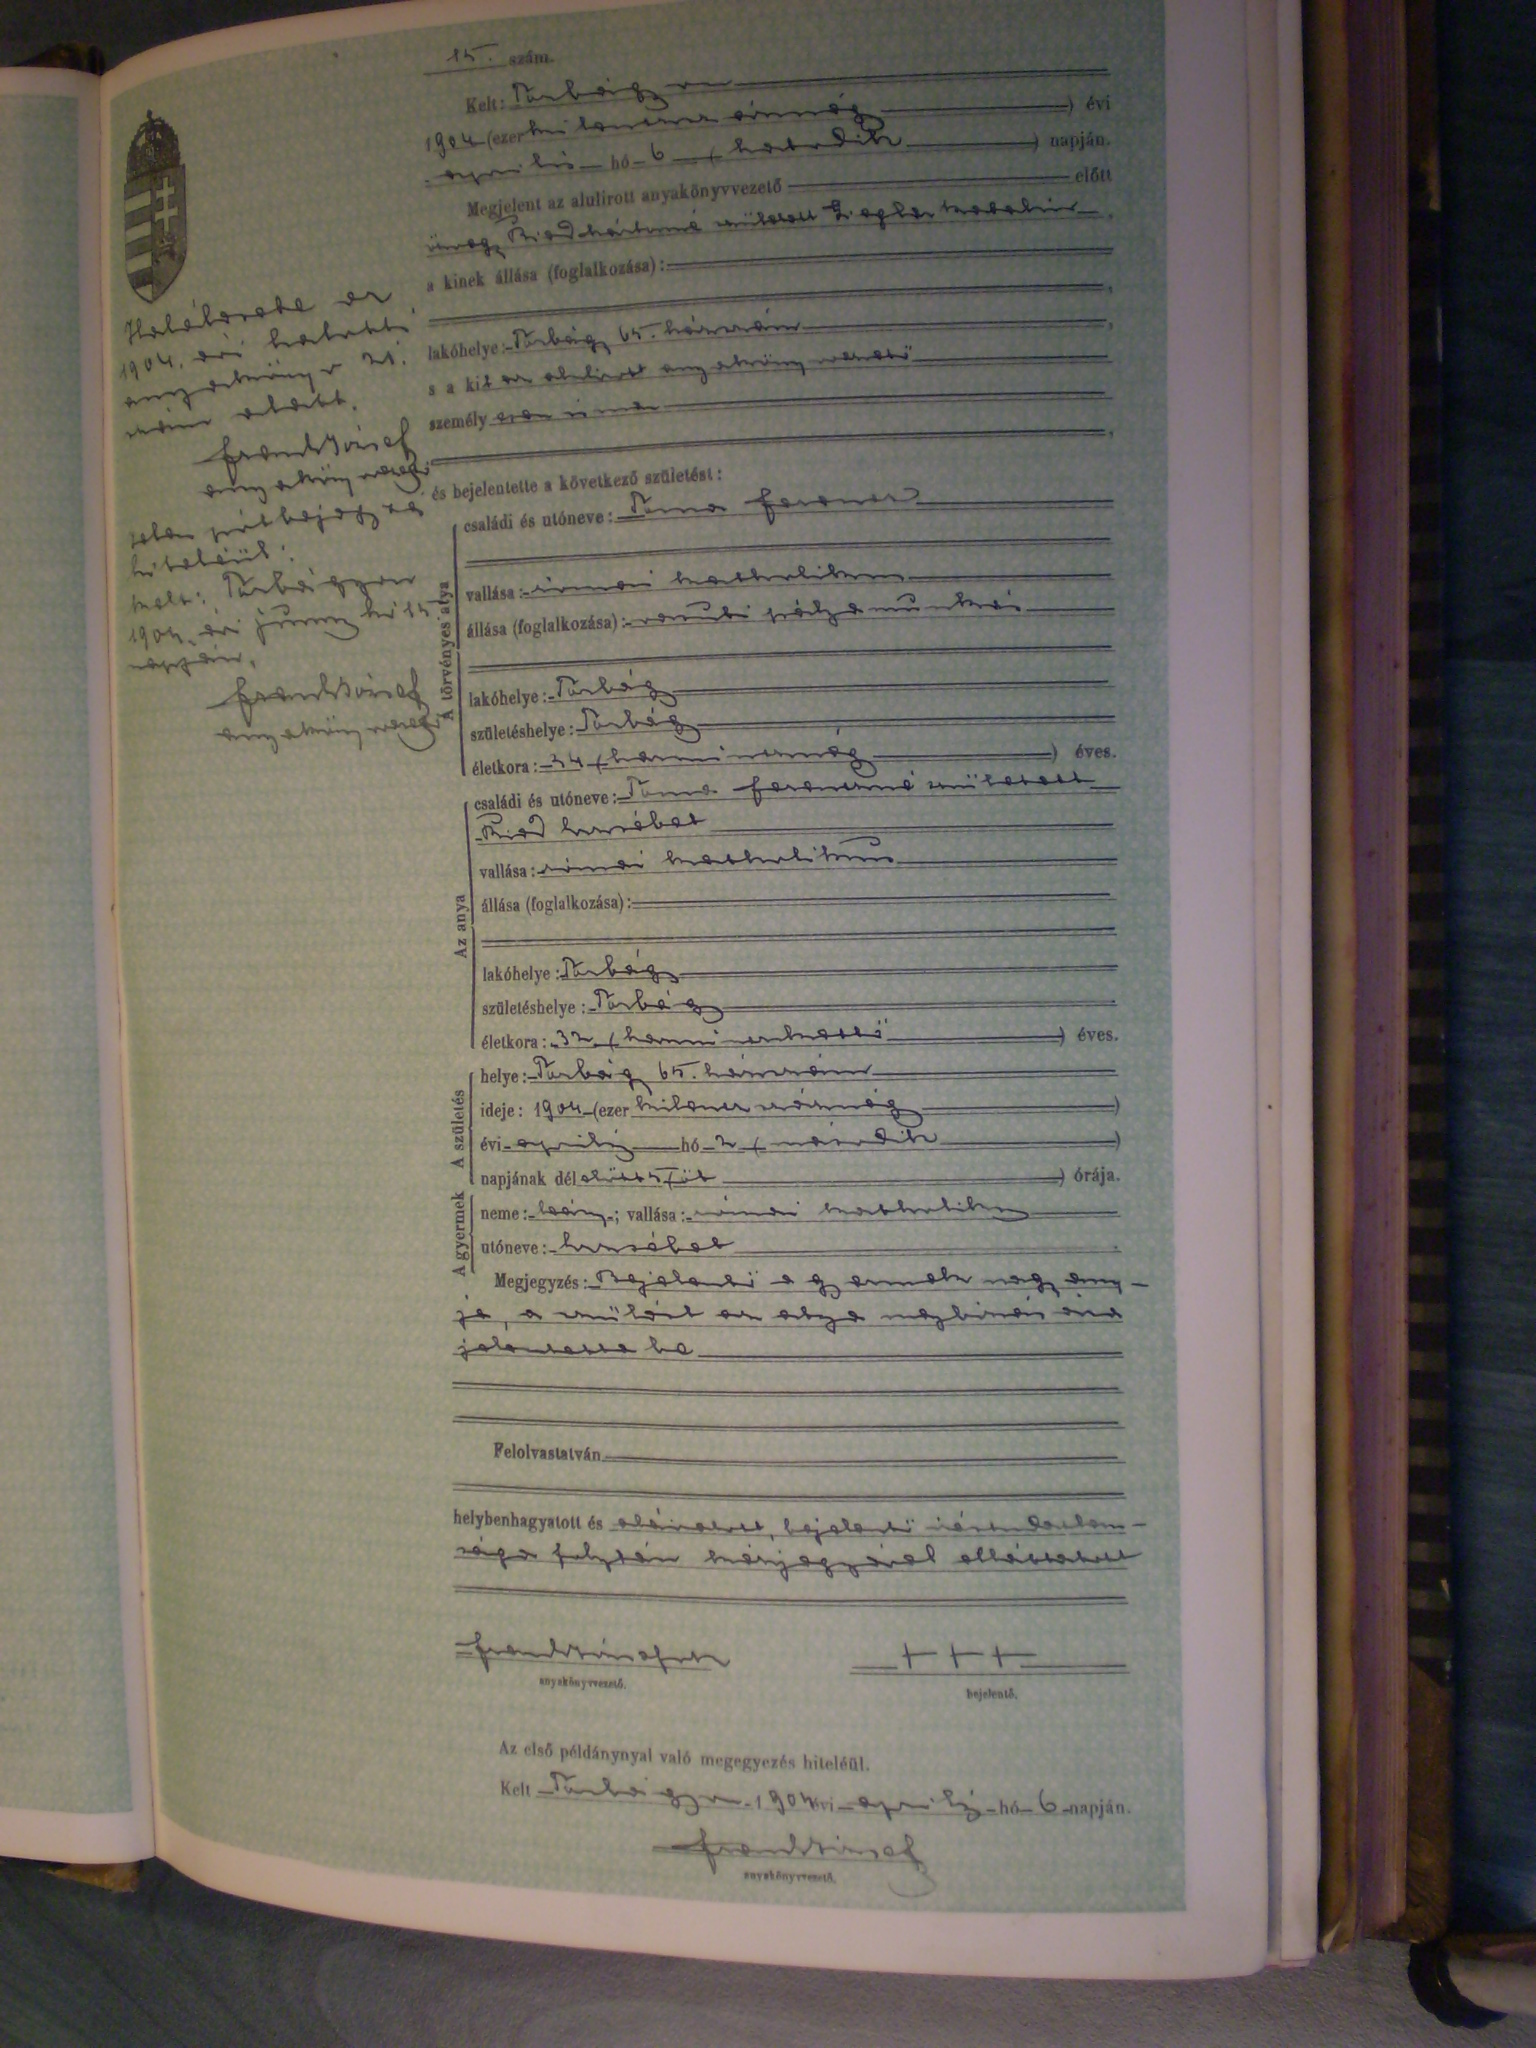 15. szám.
Kelt: Torbágyon
1904 (ezerkilencszáznégy) évi
április hó 6 (hatodik) napján.
Megjelent az alulirott anyakönyvvezető előtt
özvegy Ried született Ziegler Katalin,
a kinek állása (foglalkozása):
lakóhelye: Torbágy 65. házszám,
s a kit az alulirott anyakönyvvezető
személyesen ismer,
és bejelentette a következő születést:
A törvényes atya
családi és utóneve: Toma Ferencz
vallása: római katholikus
állása (foglalkozása): vasuti pályamunkás
lakóhelye: Torbágy
születéshelye: Torbágy
életkora: 34 (harmincznégy) éves.
Az anya
családi és utóneve: Toma Ferenczné született
Ried Erzsébet
vallása: római katholikus
állása (foglalkozása):
lakóhelye: Torbágy
születéshelye: Torbágy
életkora: 32 (harminczkettő) éves.
A születés
helye: Torbágy 65. házszám
ideje: 1904 (ezerkilenczszáznégy)
évi április hó 2 (második)
napjának délelőtt 5 (öt) órája.
A gyermek
neme: leány; vallása: római katholikus
utóneve: Erzsébet
Megjegyzés: Bejelentő a gyermek nagyany-
ja, a szülést az atya megbízásából
jelentette be
Felolvastatván
helybenhagyatott és aláiratott, bejelentő irástudatlan-
sága folytán kézjegyével elláttatott
Frank József
anyakönyvvezető.
+ + +
bejelentő.
Az első példánynyal való megegyezés hiteléül.
Kelt Torbágyon 1904 évi április hó 6 napján.
Frank József
anyakönyvvezető.
Halálesete az
1904. évi halotti
anyakönyv 21.
szám alatt.
Frank József
anyakönyvvezető
Jelen bejegyzés
hiteléül:
Kelt: Torbágyon
1904. évi hó 15
napján.
Frank József
anyakönyvvezető